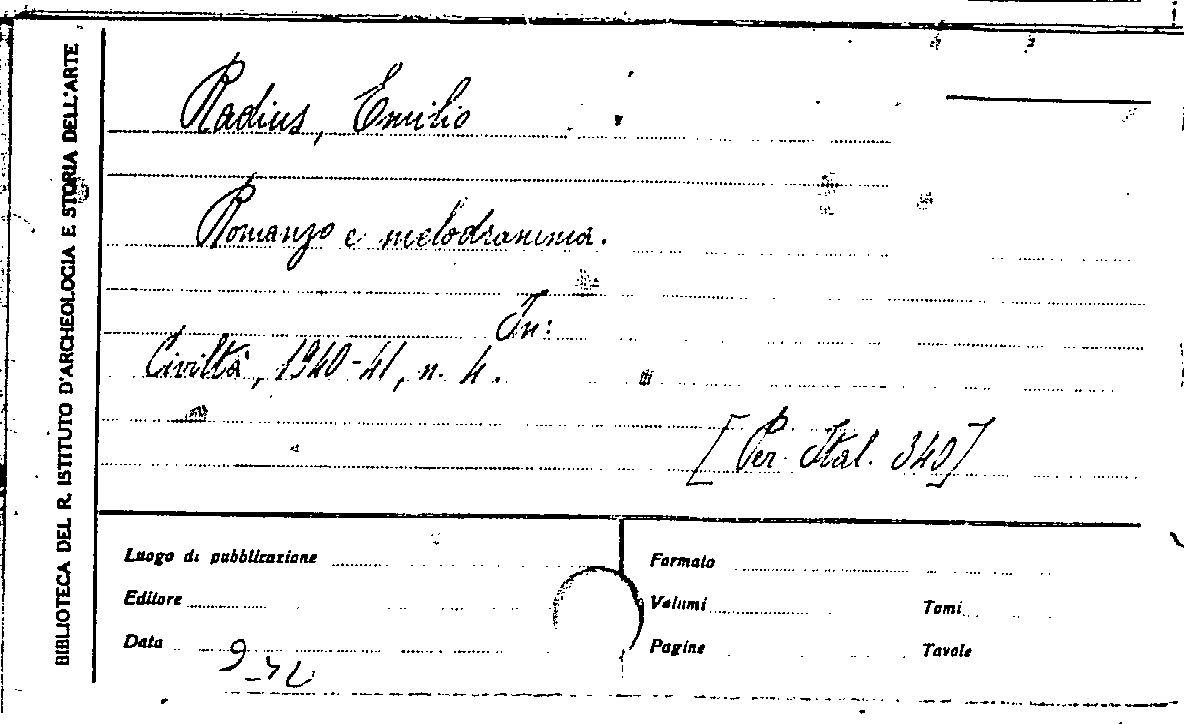 BIBLIOTECA DEL R. ISTITUTO D'ARCHEOLOGIA E STORIA DELL'ARTE
Radius, Emilio
Romanzo e melodramma.
In:
Civiltà, 1940-41, n. 4.
[Per. Ital. 340]
Luogo di pubblicazione
Formato
Editore
Volumi
Tomi
Data
Pagine
Tavole